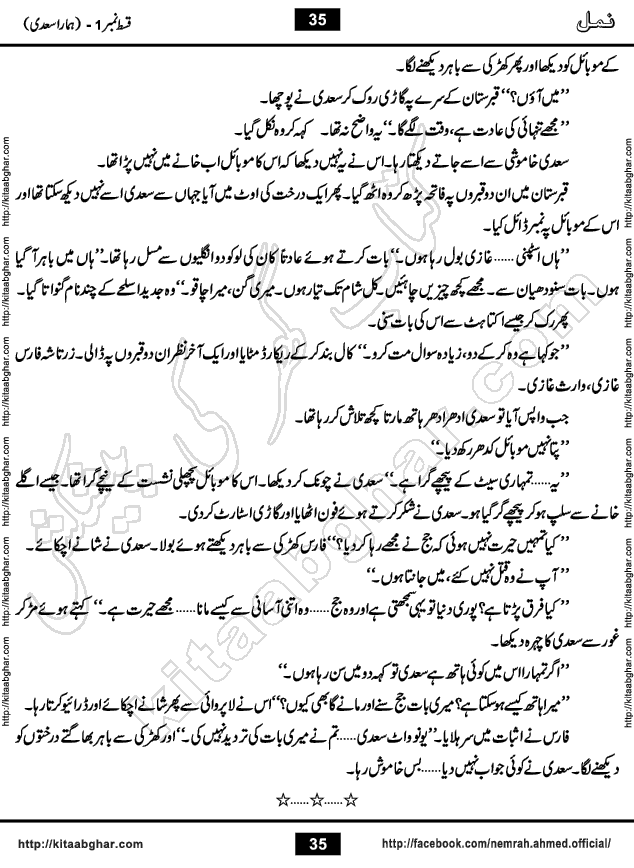 نمل
35
قسط نمبر 1 - (ہمارا سعدی)
کے موبائل کو دیکھا اور پھر کھڑکی سے باہر دیکھنے لگا۔
”میں آؤں؟“ قبرستان کے سرے پہ گاڑی روک کر سعدی نے پوچھا۔
”مجھے تنہائی کی عادت ہے، وقت لگے گا۔“ یہ واضح نہ تھا۔ کہہ کر وہ نکل گیا۔
سعدی خاموشی سے اسے جاتے دیکھتا رہا۔ اس نے یہ نہیں دیکھا کہ اس کا موبائل اب خانے میں نہیں پڑا تھا۔
قبرستان میں ان دو قبروں پہ فاتحہ پڑھ کر وہ اٹھ گیا۔ پھر ایک درخت کی اوٹ میں آیا جہاں سے سعدی اسے نہیں دیکھ سکتا تھا اور
اس کے موبائل پہ نمبر ڈائل کیا۔
”ہاں اسٹپنی...... غازی بول رہا ہوں۔“ بات کرتے ہوئے عادتاً کان کی لو کو دو انگلیوں سے مسل رہا تھا۔ ”ہاں میں باہر آ گیا
ہوں۔ بات سنو دھیان سے۔ مجھے کچھ چیزیں چاہئیں۔ کل شام تک تیار ہوں۔ میری گن، میرا چاقو۔“ وہ جدید اسلحے کے چند نام گنواتا گیا۔
پھر رک کر جیسے اکتاہٹ سے اس کی بات سنی۔
”جو کہا ہے وہ کر کے دو، زیادہ سوال مت کرو۔“ کال بند کر کے ریکارڈ مٹایا اور ایک آخر نظر ان دو قبروں پہ ڈالی۔ زرتاشہ فارس
غازی، وارث غازی۔
جب واپس آیا تو سعدی ادھر ادھر ہاتھ مارتا کچھ تلاش کر رہا تھا۔
”پتا نہیں موبائل کدھر رکھ دیا۔“
”یہ...... تمہاری سیٹ کے پیچھے گرا ہے۔“ سعدی نے چونک کر دیکھا۔ اس کا موبائل پچھلی نشست کے نیچے گرا تھا۔ جیسے اگلے
خانے سے سلپ ہو کر پیچھے گر گیا ہو۔ سعدی نے شکر کرتے ہوئے فون اٹھایا اور گاڑی اسٹارٹ کر دی۔
”کیا تمہیں حیرت نہیں ہوئی کہ جج نے مجھے رہا کر دیا؟“ فارس کھڑکی سے باہر دیکھتے ہوئے بولا۔ سعدی نے شانے اچکائے۔
”آپ نے وہ قتل نہیں کئے، میں جانتا ہوں۔“
”کیا فرق پڑتا ہے؟ پوری دنیا تو یہی سمجھتی ہے اور وہ جج...... وہ اتنی آسانی سے کیسے مانا...... مجھے حیرت ہے۔“ کہتے ہوئے مڑ کر
غور سے سعدی کا چہرہ دیکھا۔
”اگر تمہارا اس میں کوئی ہاتھ ہے سعدی تو کہہ دو میں سن رہا ہوں۔“
”میرا ہاتھ کیسے ہو سکتا ہے؟ میری بات جج سنے اور مانے گا بھی کیوں؟“ اس نے لاپروائی سے پھر شانے اچکائے اور ڈرائیو کرتا رہا۔
فارس نے اثبات میں سر ہلایا۔ ”یو نو واٹ سعدی...... تم نے میری بات کی تردید نہیں کی۔“ اور کھڑکی سے باہر بھاگتے درختوں کو
دیکھنے لگا۔ سعدی نے کوئی جواب نہیں دیا...... بس خاموش رہا۔
☆......☆......☆
http://kitaabghar.com
http://kitaabghar.com
http://kitaabghar.com
http://kitaabghar.com
http://kitaabghar.com
http://kitaabghar.com
http://kitaabghar.com
http://kitaabghar.com
http://kitaabghar.com
http://kitaabghar.com
http://kitaabghar.com
http://kitaabghar.com
کتاب گھر کی پیشکش
kitaabghar.com
http://kitaabghar.com
35
http://facebook.com/nemrah.ahmed.official/